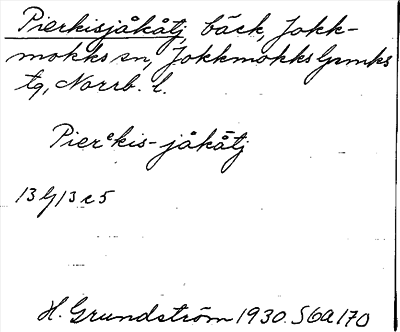 Pierkisjåkåtj, bäck, Jokk-
mokks sn, Jokkmokks lpmks
tg, Norrb. l.
Pierᵉkis-jåkåtj
H. Grundström 1930. S6a170